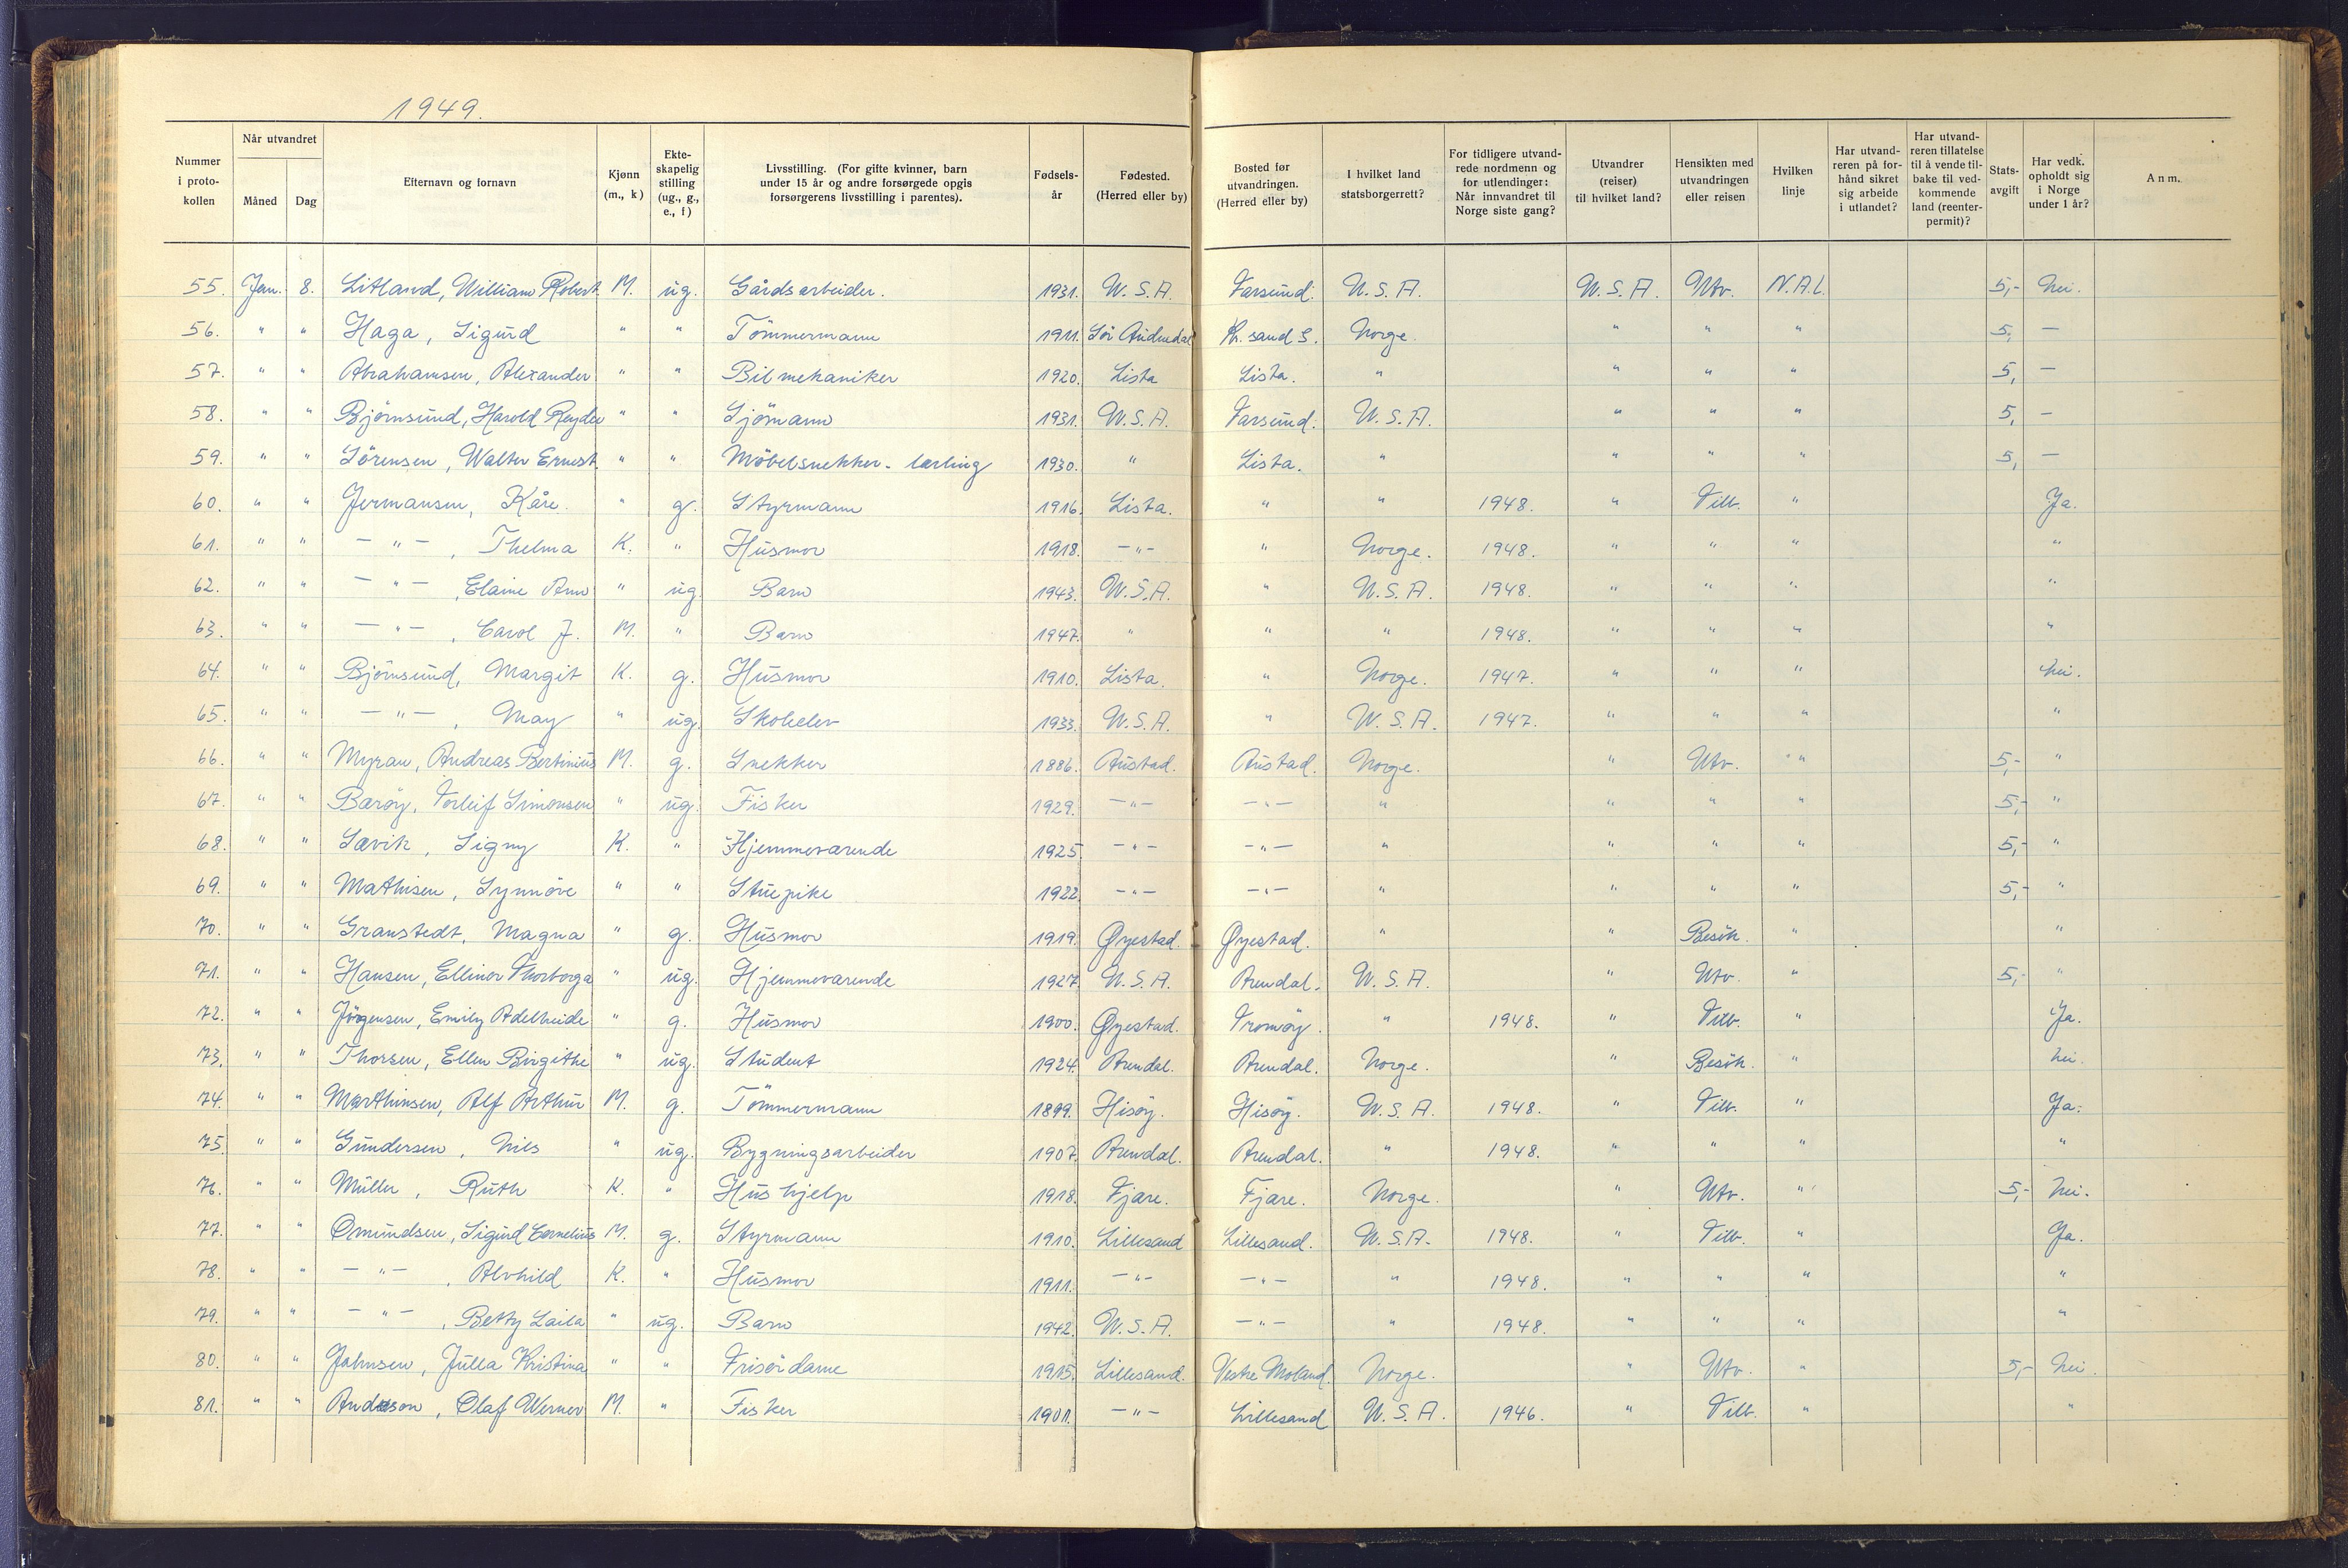 1949.
Nummer i proto-kollen | Når utvandret Måned | Dag | Efternavn og fornavn | Kjønn (m., k) | Ekte-skapelig stilling (ug., g., e., f) | Livsstilling. (For gifte kvinner, barn under 15 år og andre forsørgede opgis forsørgerens livsstilling i parentes). | Fødsels-år | Fødested. (Herred eller by) | Bosted før utvandringen. (Herred eller by) | I hvilket land statsborgerrett? | For tidligere utvand-rede nordmenn og for utlendinger: Når innvandret til Norge siste gang? | Utvandrer (reiser) til hvilket land? | Hensikten med utvandringen eller reisen | Hvilken linje | Har utvand-reren på for-hånd sikret sig arbeide i utlandet? | Har utvand-reren tillatelse til å vende til-bake til ved-kommende land (reenter-permit)? | Stats-avgift | Har vedk. opholdt sig i Norge under 1 år? | Anm.
55. Jan. 8. Litland, William Robert M. ug. Gårdsarbeider. 1931. U.S.A. Farsund. U.S.A. U.S.A. Utv. N.A.L. 5,- nei.
56. " " Haga, Sigurd " " Tömmermann 1911. Sör Audnedal Kr.sand S. Norge. " " " 5, —
57. " " Abrahamsen, Alexander " " Bilmekaniker 1920. Lista Lista. " " " " 5, —
58. " " Björnsund, Harold Reyder " " Sjömann 1931. U.S.A. Farsund. U.S.A. " " " 5, —
59. " " Sörensen, Walter Ernest " " Möbelsnekker-lærling 1930. " Lista. " " " " 5, —
60. " " Jermansen, Kåre. " g. Styrmann 1916. Lista. " " 1948. " Tilb. " Ja.
61. " " — " — , Thelma K. " Husmor 1918. — " — " Norge. 1948. " " " "
62. " " — " — , Elaine Ann " ug. Barn 1943. U.S.A. " U.S.A. 1948. " " " "
63. " " — " — , Carol J. M. " Barn 1947. " " " 1948. " " " "
64. " " Björnsund, Margit K. g. Husmor 1910. Lista. " Norge. 1947. " " " nei.
65. " " — " — , May " ug. Skoleelev 1933. U.S.A. " U.S.A. 1947. " " " "
66. " " Myran, Andreas Bertinius M. g. Snekker 1886. Austad. Austad. Norge. " Utv. " 5,- "
67. " " Barøy, Torleif Simonsen " ug. Fisker 1929. — " — — " — " " " " 5,- "
68. " " Sævik, Signy K. " Hjemmeværende 1925 — " — — " — " " " " 5,- "
69. " " Mathisen, Synnöve " " Stuepike 1922 — " — — " — " " " " 5,- "
70. " " Granstedt, Magna " g. Husmor 1919. Øyestad. Øyestad. " " Besök. " "
71. " " Hansen, Ellinor Thorborga " ug. Hjemmeværende 1927. U.S.A. Arendal. U.S.A. " Utv. " 5,- "
72. " " Jörgensen, Emily Adelheide " g. Husmor 1900. Øyestad. Tromøy. " 1948. " Tilb. " Ja.
73. " " Thorsen, Ellen Birgithe " ug. Student 1924. Arendal. Arendal. Norge. " Besök. " nei.
74. " " Marthinsen, Alf Arthur M. g. Tömmermann 1899. Hisøy. Hisøy. U.S.A. 1948. " Tilb. " Ja.
75. " " Gundersen, Nils " ug. Bygningsarbeider 1907. Arendal. Arendal. " 1948. " " " "
76. " " Müller, Ruth K. " Hushjelp 1918. Fjære. Fjære. Norge. " Utv. " 5,- nei.
77. " " Omundsen, Sigurd Cornelius M. g. Styrmann 1910. Lillesand Lillesand. U.S.A. 1948. " Tilb. " Ja.
78. " " — " — , Alvhild K. " Husmor 1911. — " — — " — " 1948. " " " "
79. " " — " — , Betty Laila " ug. Barn 1942. U.S.A. — " — " 1948. " " " "
80. " " Johnsen, Julla Kristina " " Frisördame 1915. Lillesand. Vestre Moland. Norge. " Utv. " 5,- nei.
81. " " Anderson, Olaf Werner M. " Fisker 1901. — " — Lillesand U.S.A. 1946. " Tilb. " "